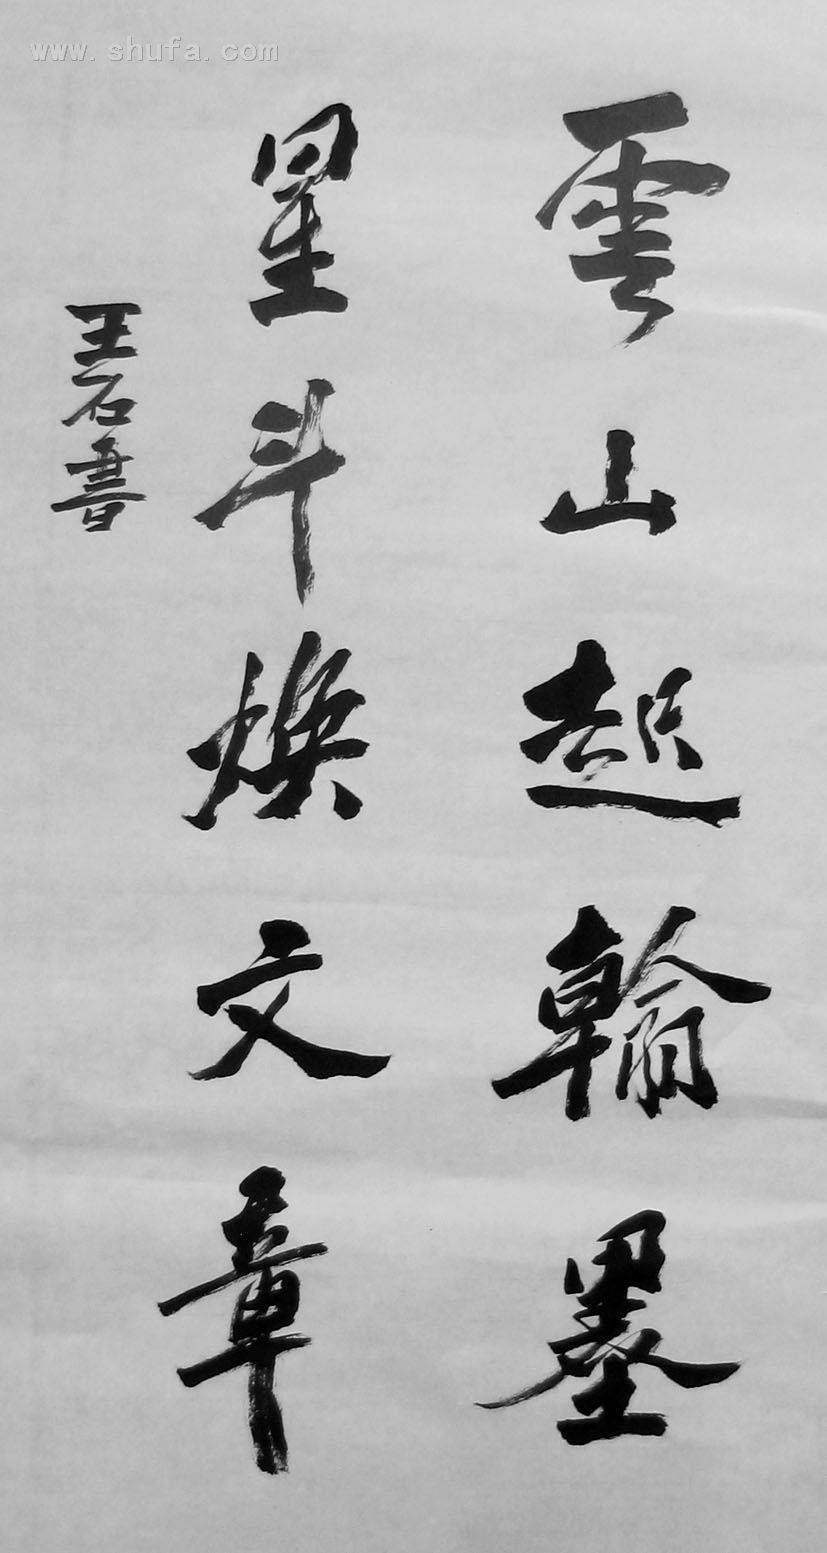 www.shufa.com
雲山起翰墨
星斗煥文章
王石書